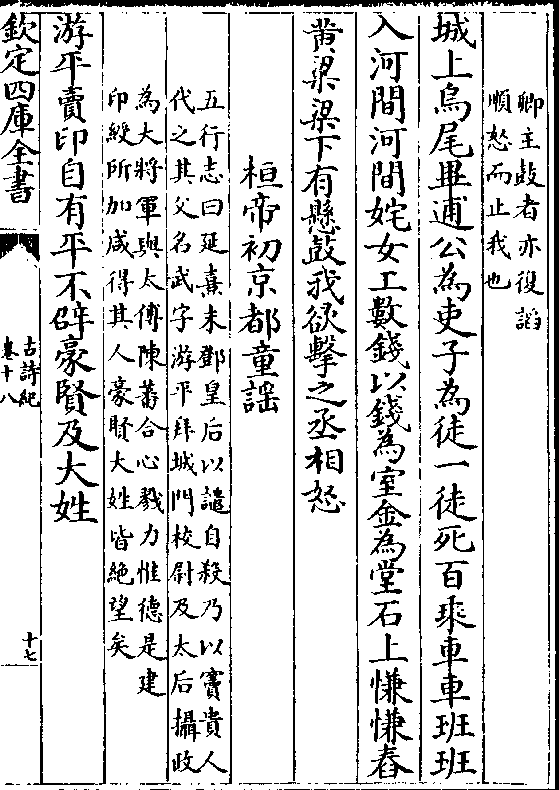 卿主鼓者亦復諂
順怒而止我也
城上烏尾畢逋公為吏子為徒一徒死百乘車車班班
入河間河間姹女工數錢以錢為室金為堂石上慊慊舂
黄粱粱下有懸鼓我欲擊之丞相怒
桓帝初京都童謡
五行志曰延熹末鄧皇后以譴自殺乃以竇貴人
代之其父名武字游平拜城門校尉及太后攝政
為大將軍與太傅陳蕃合心戮力惟德是建
印綬所加咸得其人豪賢大姓皆絶望矣
游平賣印自有平不辟豪賢及大姓
欽定四庫全書
古詩紀
卷十八
十七